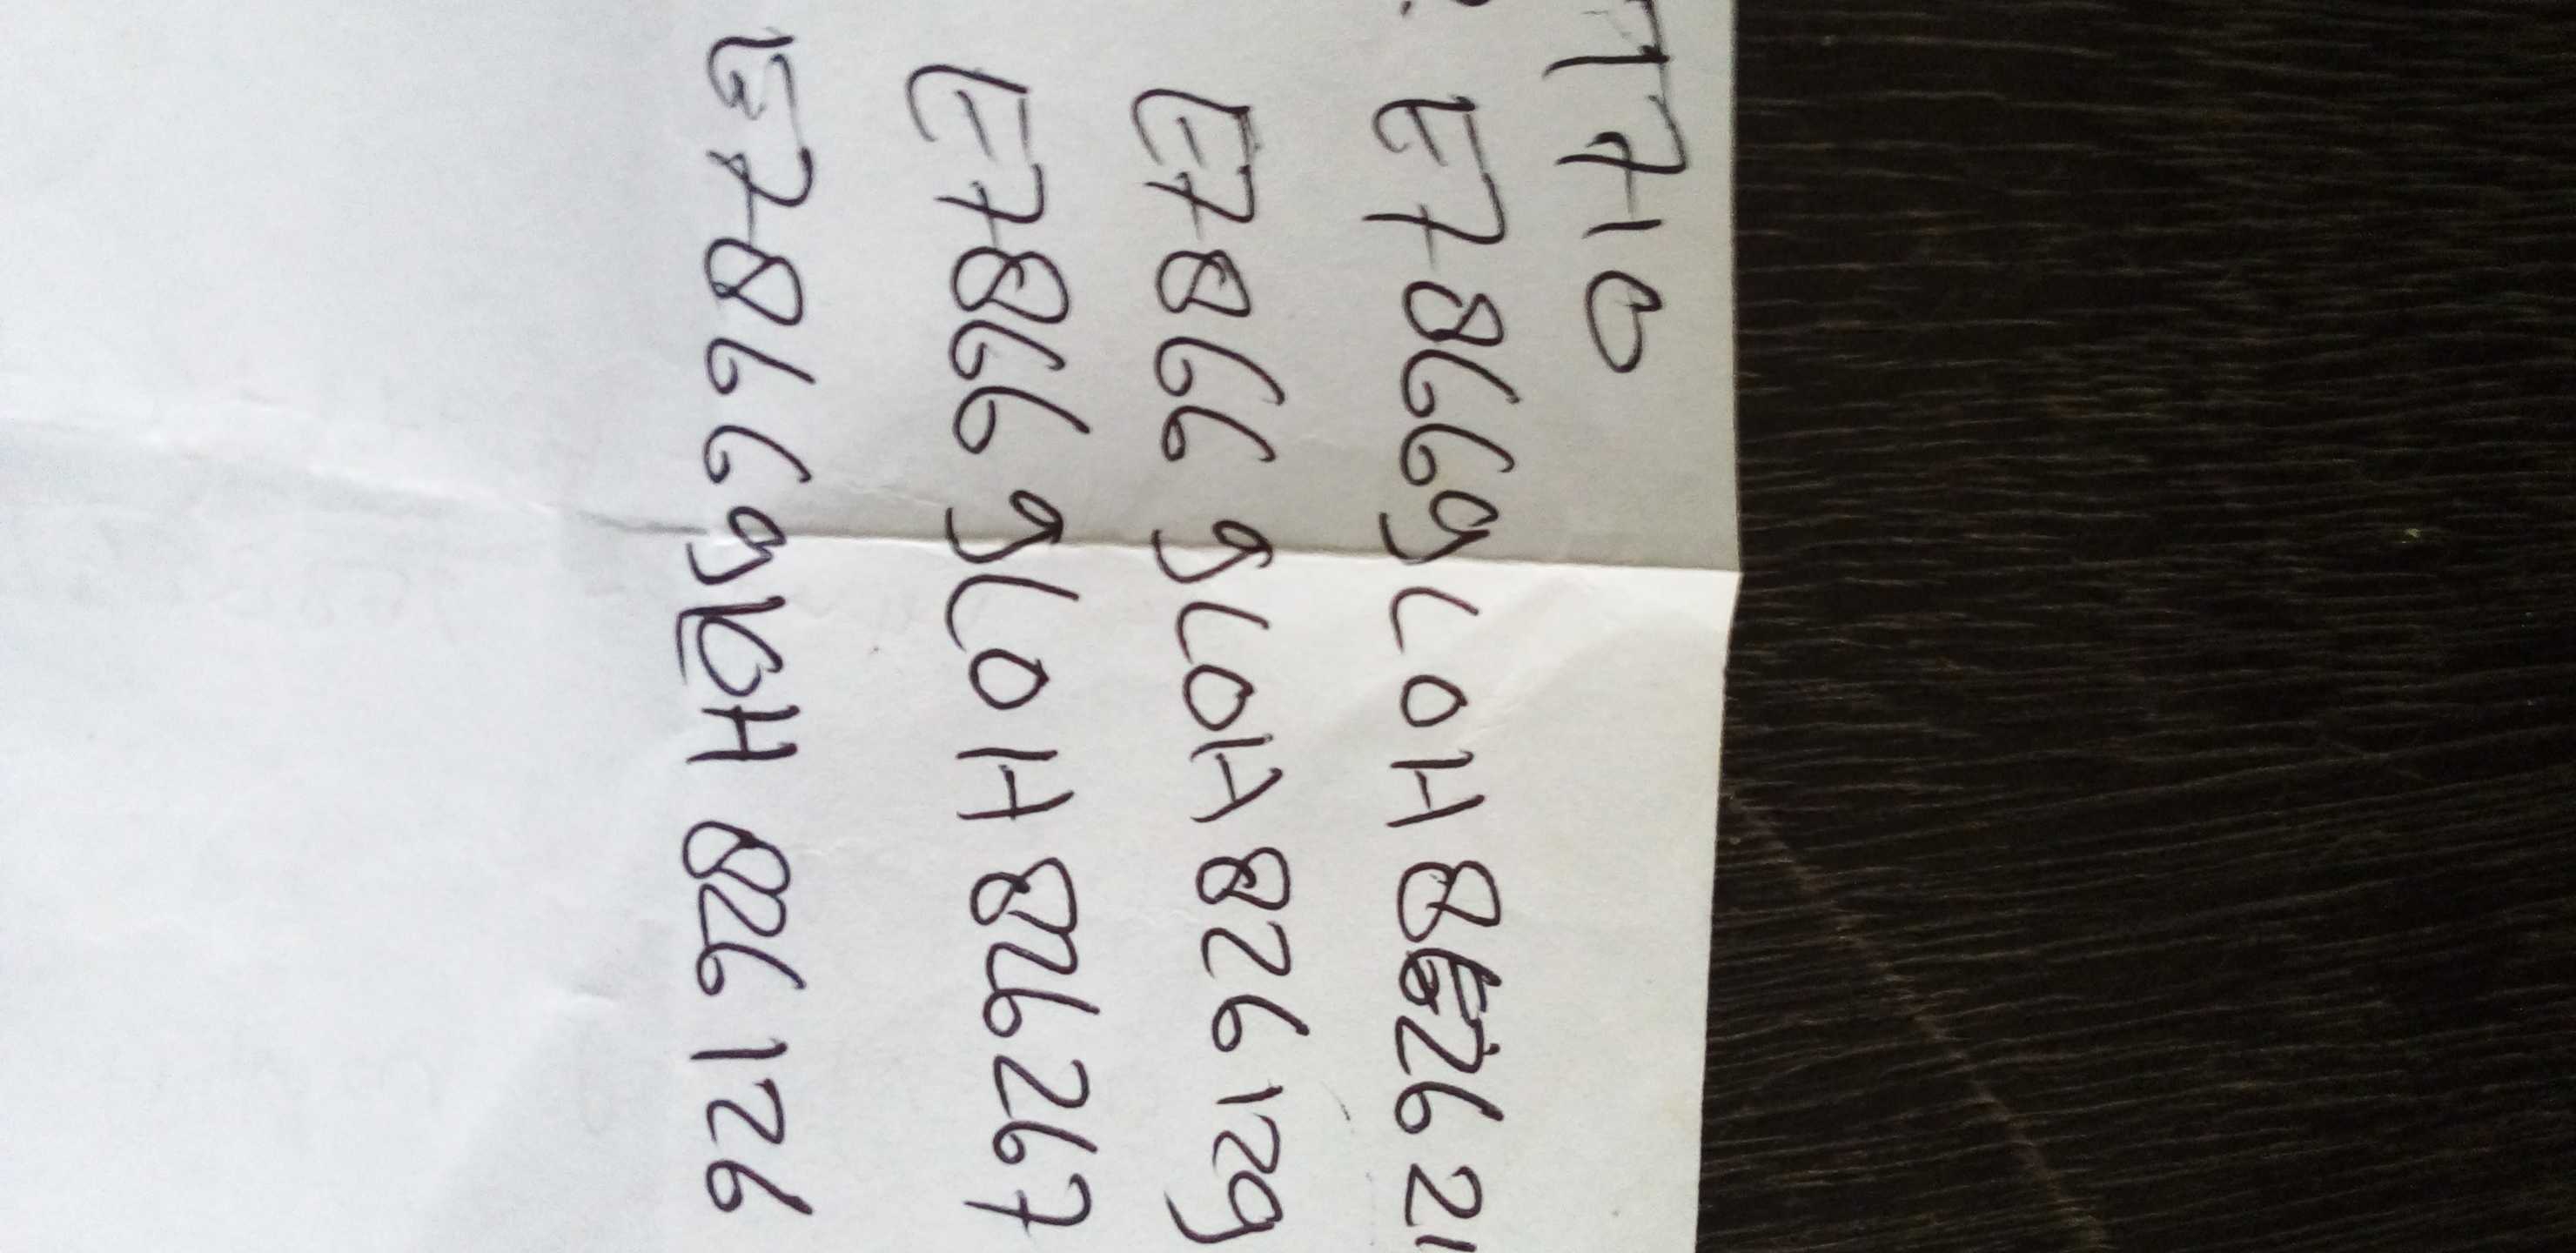 T710
E78669L0H82621
E78669L0H826129
E78669L0H826267
E78669L0H826126